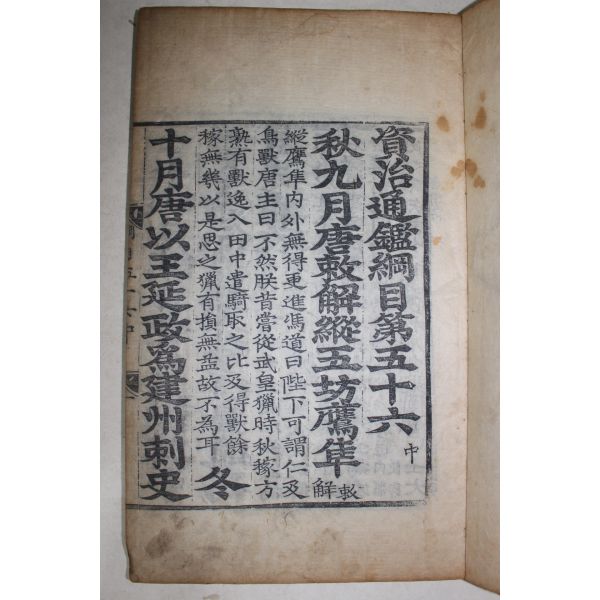 資治通鑑綱目第五十六 中
秋九月唐敕解縱五坊鷹隼 敕解
縱鷹隼內外無得更進馮道曰陛下可謂仁及
鳥獸唐主曰不然朕昔嘗從武皇獵時秋稼方
熟有獸逸入田中遣騎取之比及得獸餘
稼無幾以是思之獵有損無益故不為耳
冬
十月唐以王延政為建州刺史